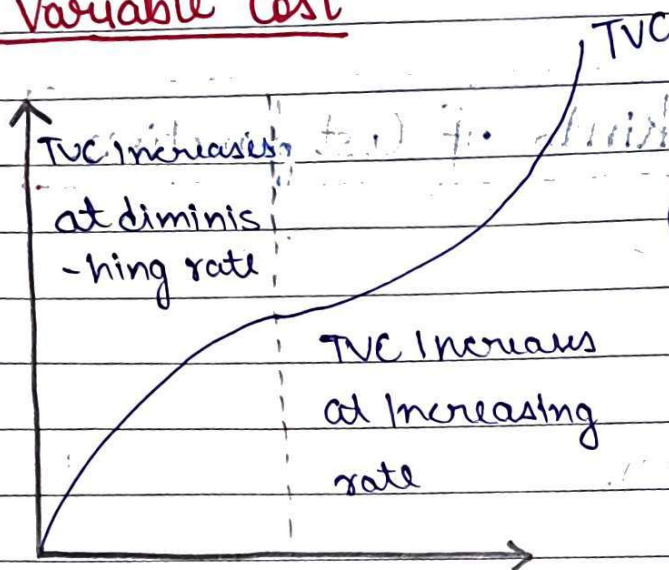 Variable Cost
TVC
TVC Increases
at diminis
-hing rate
TVC Increases
at Increasing
rate